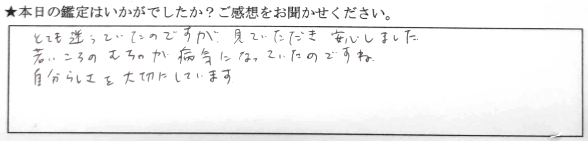 ★本日の鑑定はいかがでしたか？ご感想をお聞かせください。
とても迷っていたのですが、見ていただき安心しました
若いころのむちゃが病気になっていたのですね
自分らしさを大切にしています